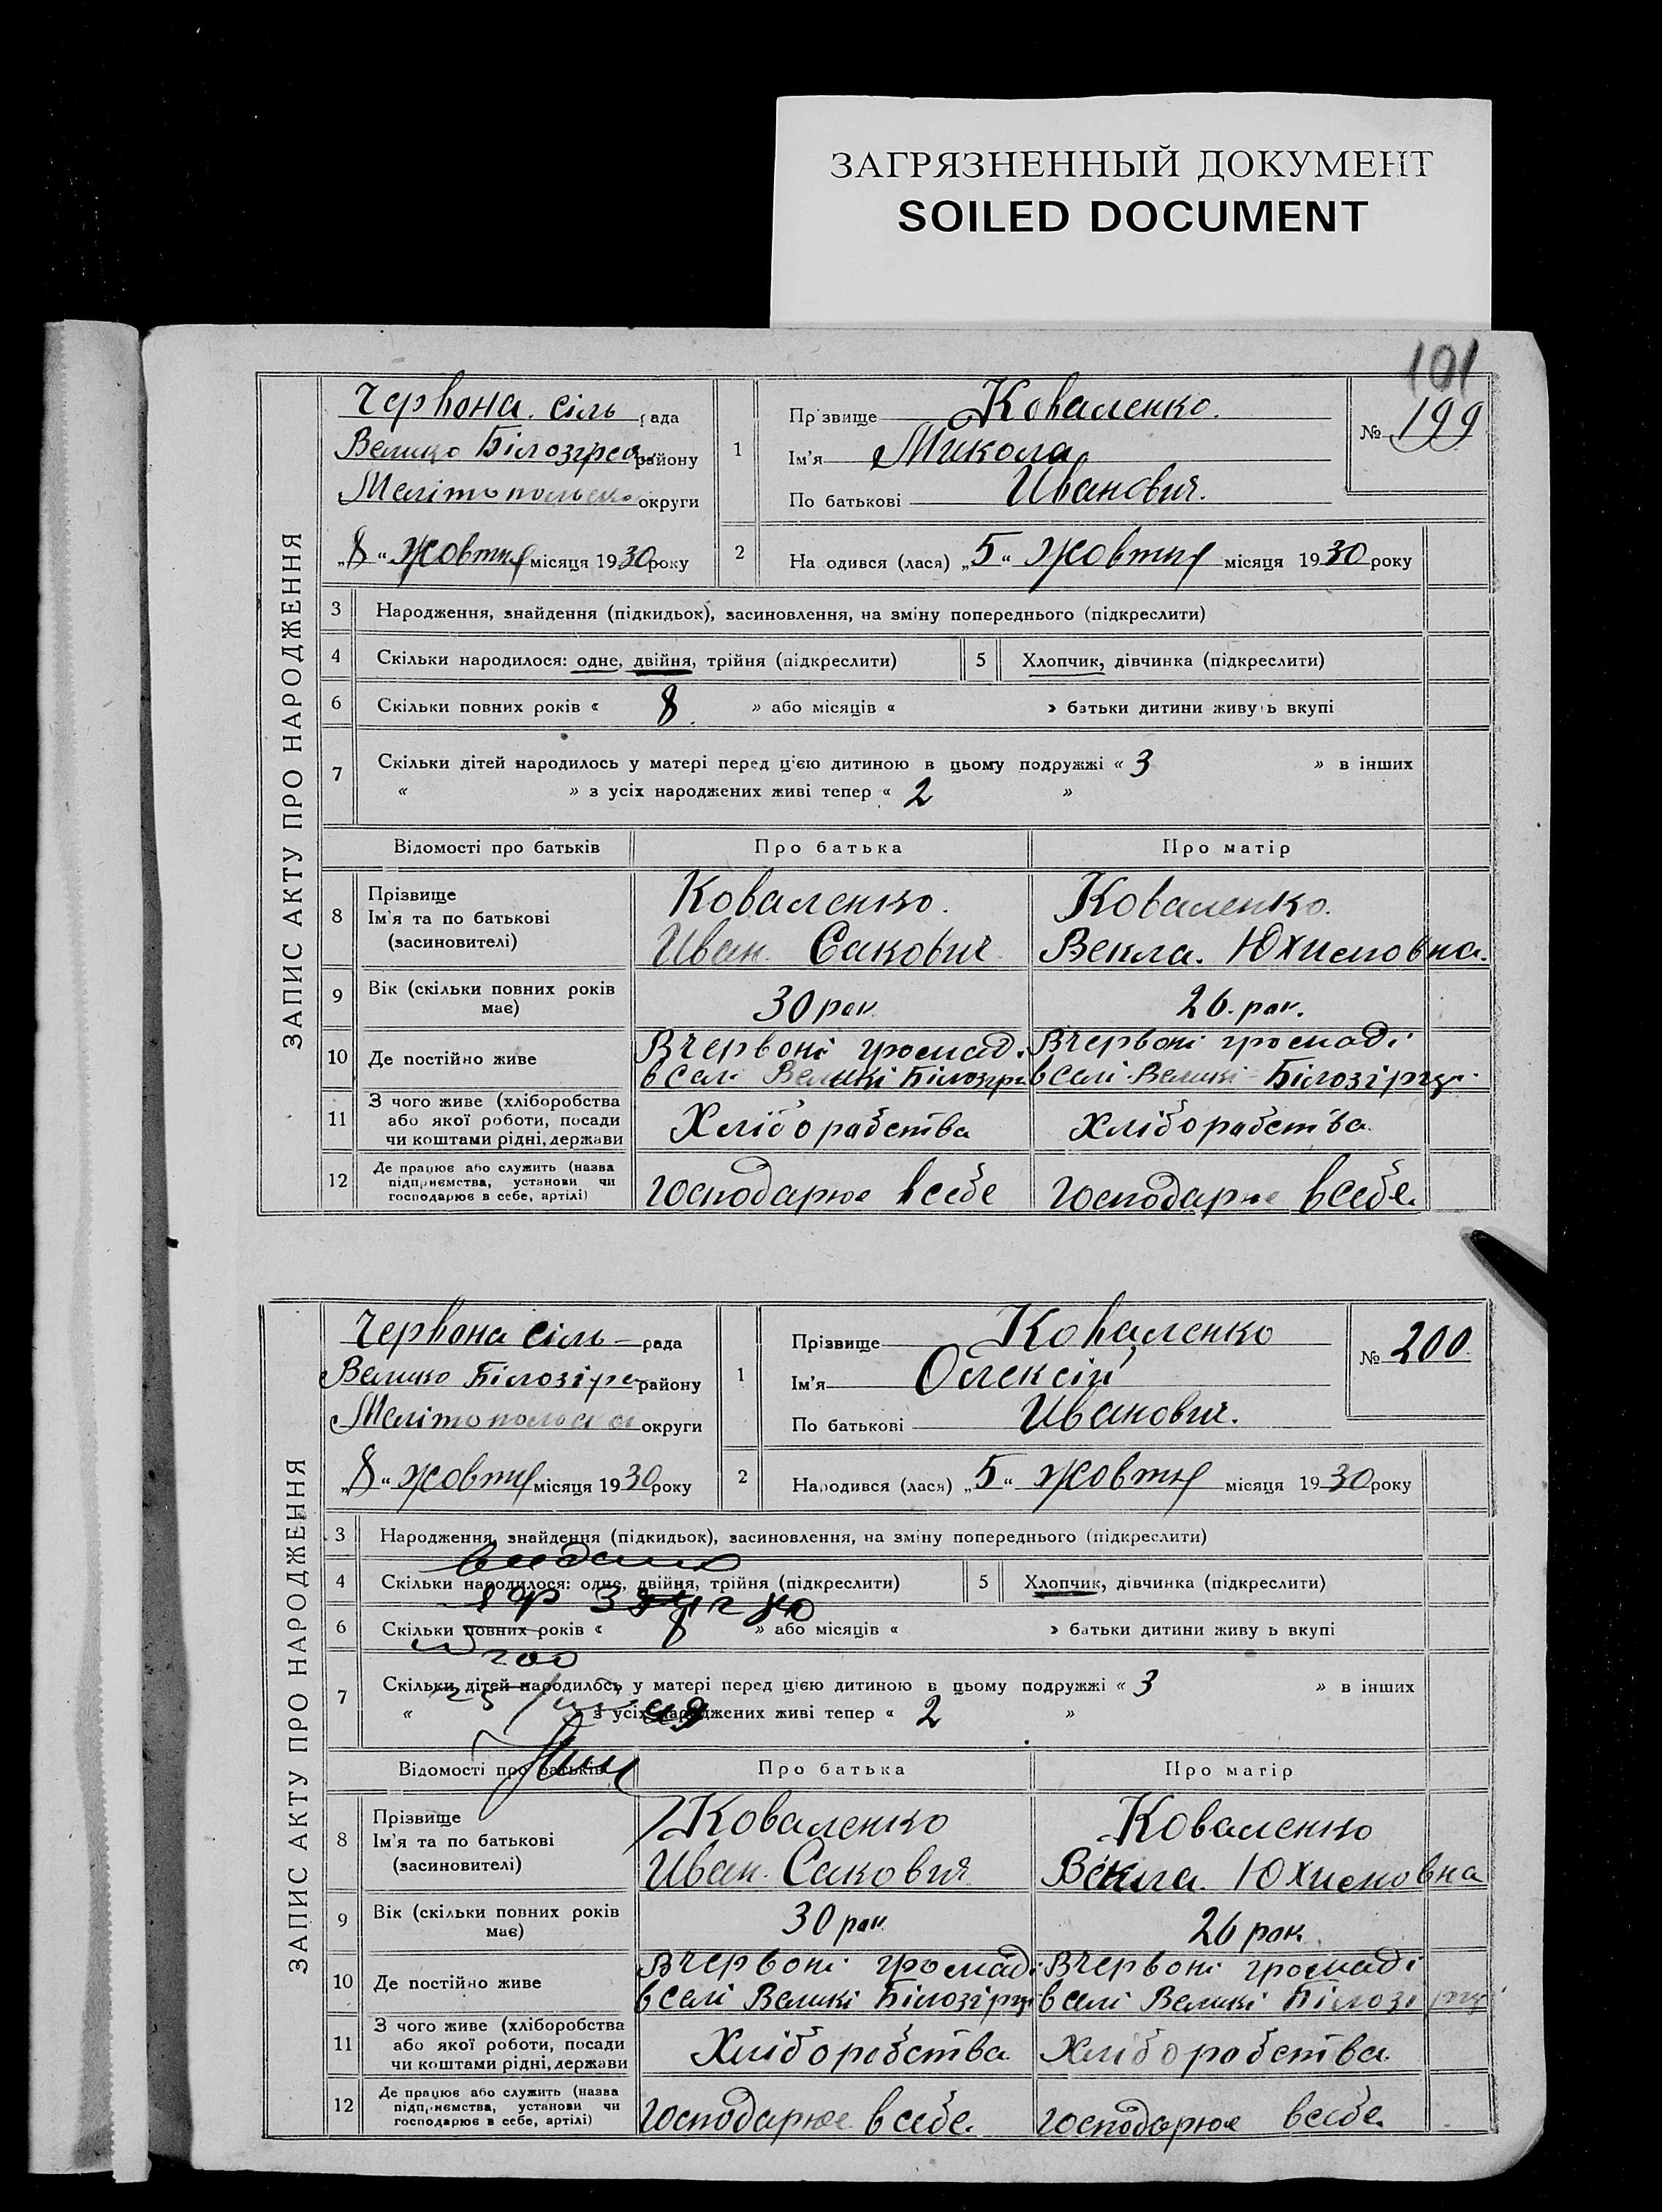 ЗАГРЯЗНЕННЫЙ ДОКУМЕНТ
SOILED DOCUMENT
101
ЗАПИС АКТУ ПРО НАРОДЖЕННЯ
Червона. сіль рада
Велико Білозірсь району
Мелітопольско округи
„8“ Жовтня місяця 1930 року
1
Пр звище Коваленко.
Ім'я Микола
По батькові Иванович.
№ 199
2
На одився (лася) „5“ Жовтня місяця 1930 року
3 Народження, знайдення (підкидьок), засиновлення, на зміну попереднього (підкреслити)
4 Скільки народилося: одне, двійня, трійня (підкреслити) 5 Хлопчик, дівчинка (підкреслити)
6 Скільки повних років « 8 » або місяців « » батьки дитини живу ь вкупі
7 Скільки дітей народилось у матері перед цією дитиною в цьому подружжі « 3 » в інших
« » з усіх народжених живі тепер « 2 »
Відомості про батьків Про батька Про матір
8 Прізвище
Ім'я та по батькові
(засиновителі)
Коваленко. Коваленко.
Иван. Сакович Векла. Юхимовна.
9 Вік (скільки повних років
має)
30 рок. 26. рок.
10 Де постійно живе
Вчервоні громаді Вчервоні громаді
в селі Великі Білозірц в селі Великі Білозірці
11 З чого живе (хліборобства
або якої роботи, посади
чи коштами рідні, держави
Хліборобства Хліборобства.
12 Де працює або служить (назва
підприємства, установи чи
господарює в себе, артілі)
Господарює всебе Господарює всебе.
ЗАПИС АКТУ ПРО НАРОДЖЕННЯ
Червона сіль рада
Велико Білозірс району
Мелітопольско округи
„8“ Жовтня місяця 1930 року
1
Прізвище Коваленко
Ім'я Олексій
По батькові Иванович.
№ 200
2
Народився (лася) „5“ Жовтня місяця 1930 року
3 Народження, знайдення (підкидьок), засиновлення, на зміну попереднього (підкреслити)
4 Скільки народилося: одне, двійня, трійня (підкреслити) 5 Хлопчик, дівчинка (підкреслити)
6 Скільки повних років « 8 » або місяців « » батьки дитини живу ь вкупі
200
7 Скільки дітей народилось у матері перед цією дитиною в цьому подружжі « 3 » в інших
« з усіх народжених живі тепер « 2 »
Відомості про батьків Про батька Про матір
8 Прізвище
Ім'я та по батькові
(засиновителі)
Коваленко Коваленко
Иван. Сакович Векла. Юхимовна
9 Вік (скільки повних років
має)
30 рок 26 рок
10 Де постійно живе
Вчервоні громаді Вчервоні громаді
в селі Великі Білозірці в селі Великі Білозірці
11 З чого живе (хліборобства
або якої роботи, посади
чи коштами рідні, держави
Хліборобства Хліборобства
12 Де працює або служить (назва
підприємства, установи чи
господарює в себе, артілі)
Господарює всебе. Господарює всебе.